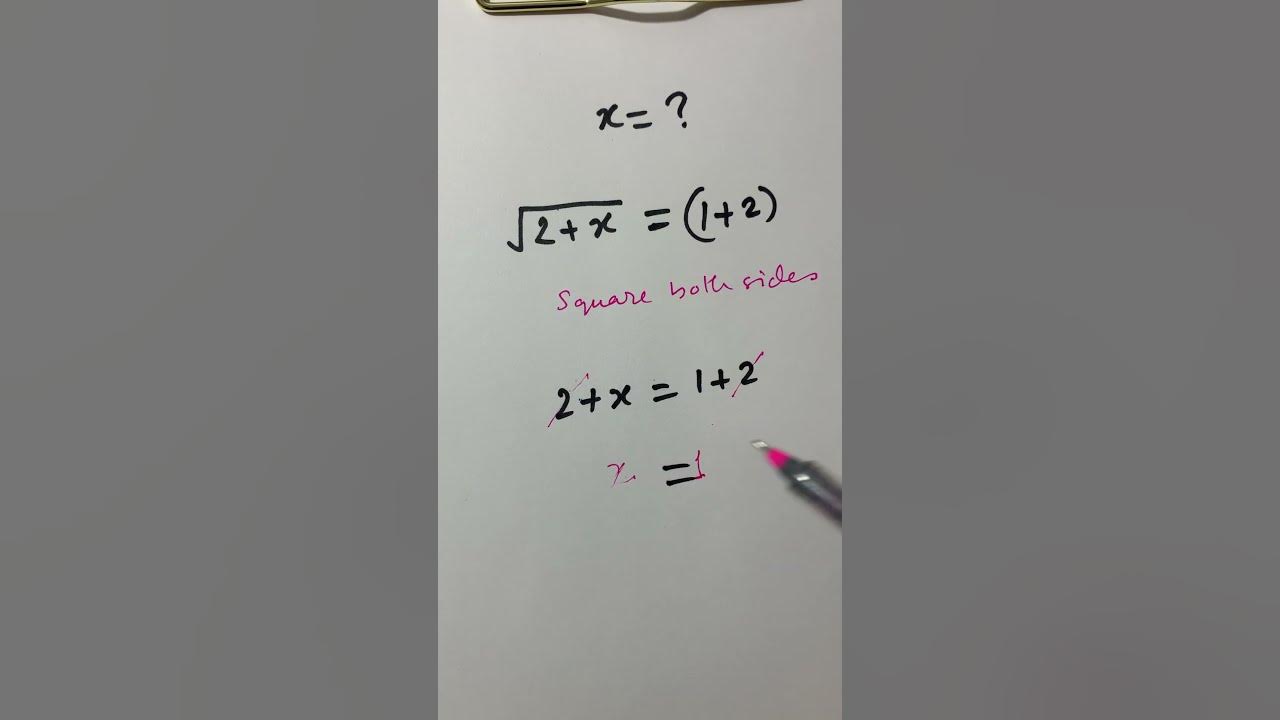 x = ?
√2+x = (1+2)
Square both sides
2+x = 1+2
x = 1